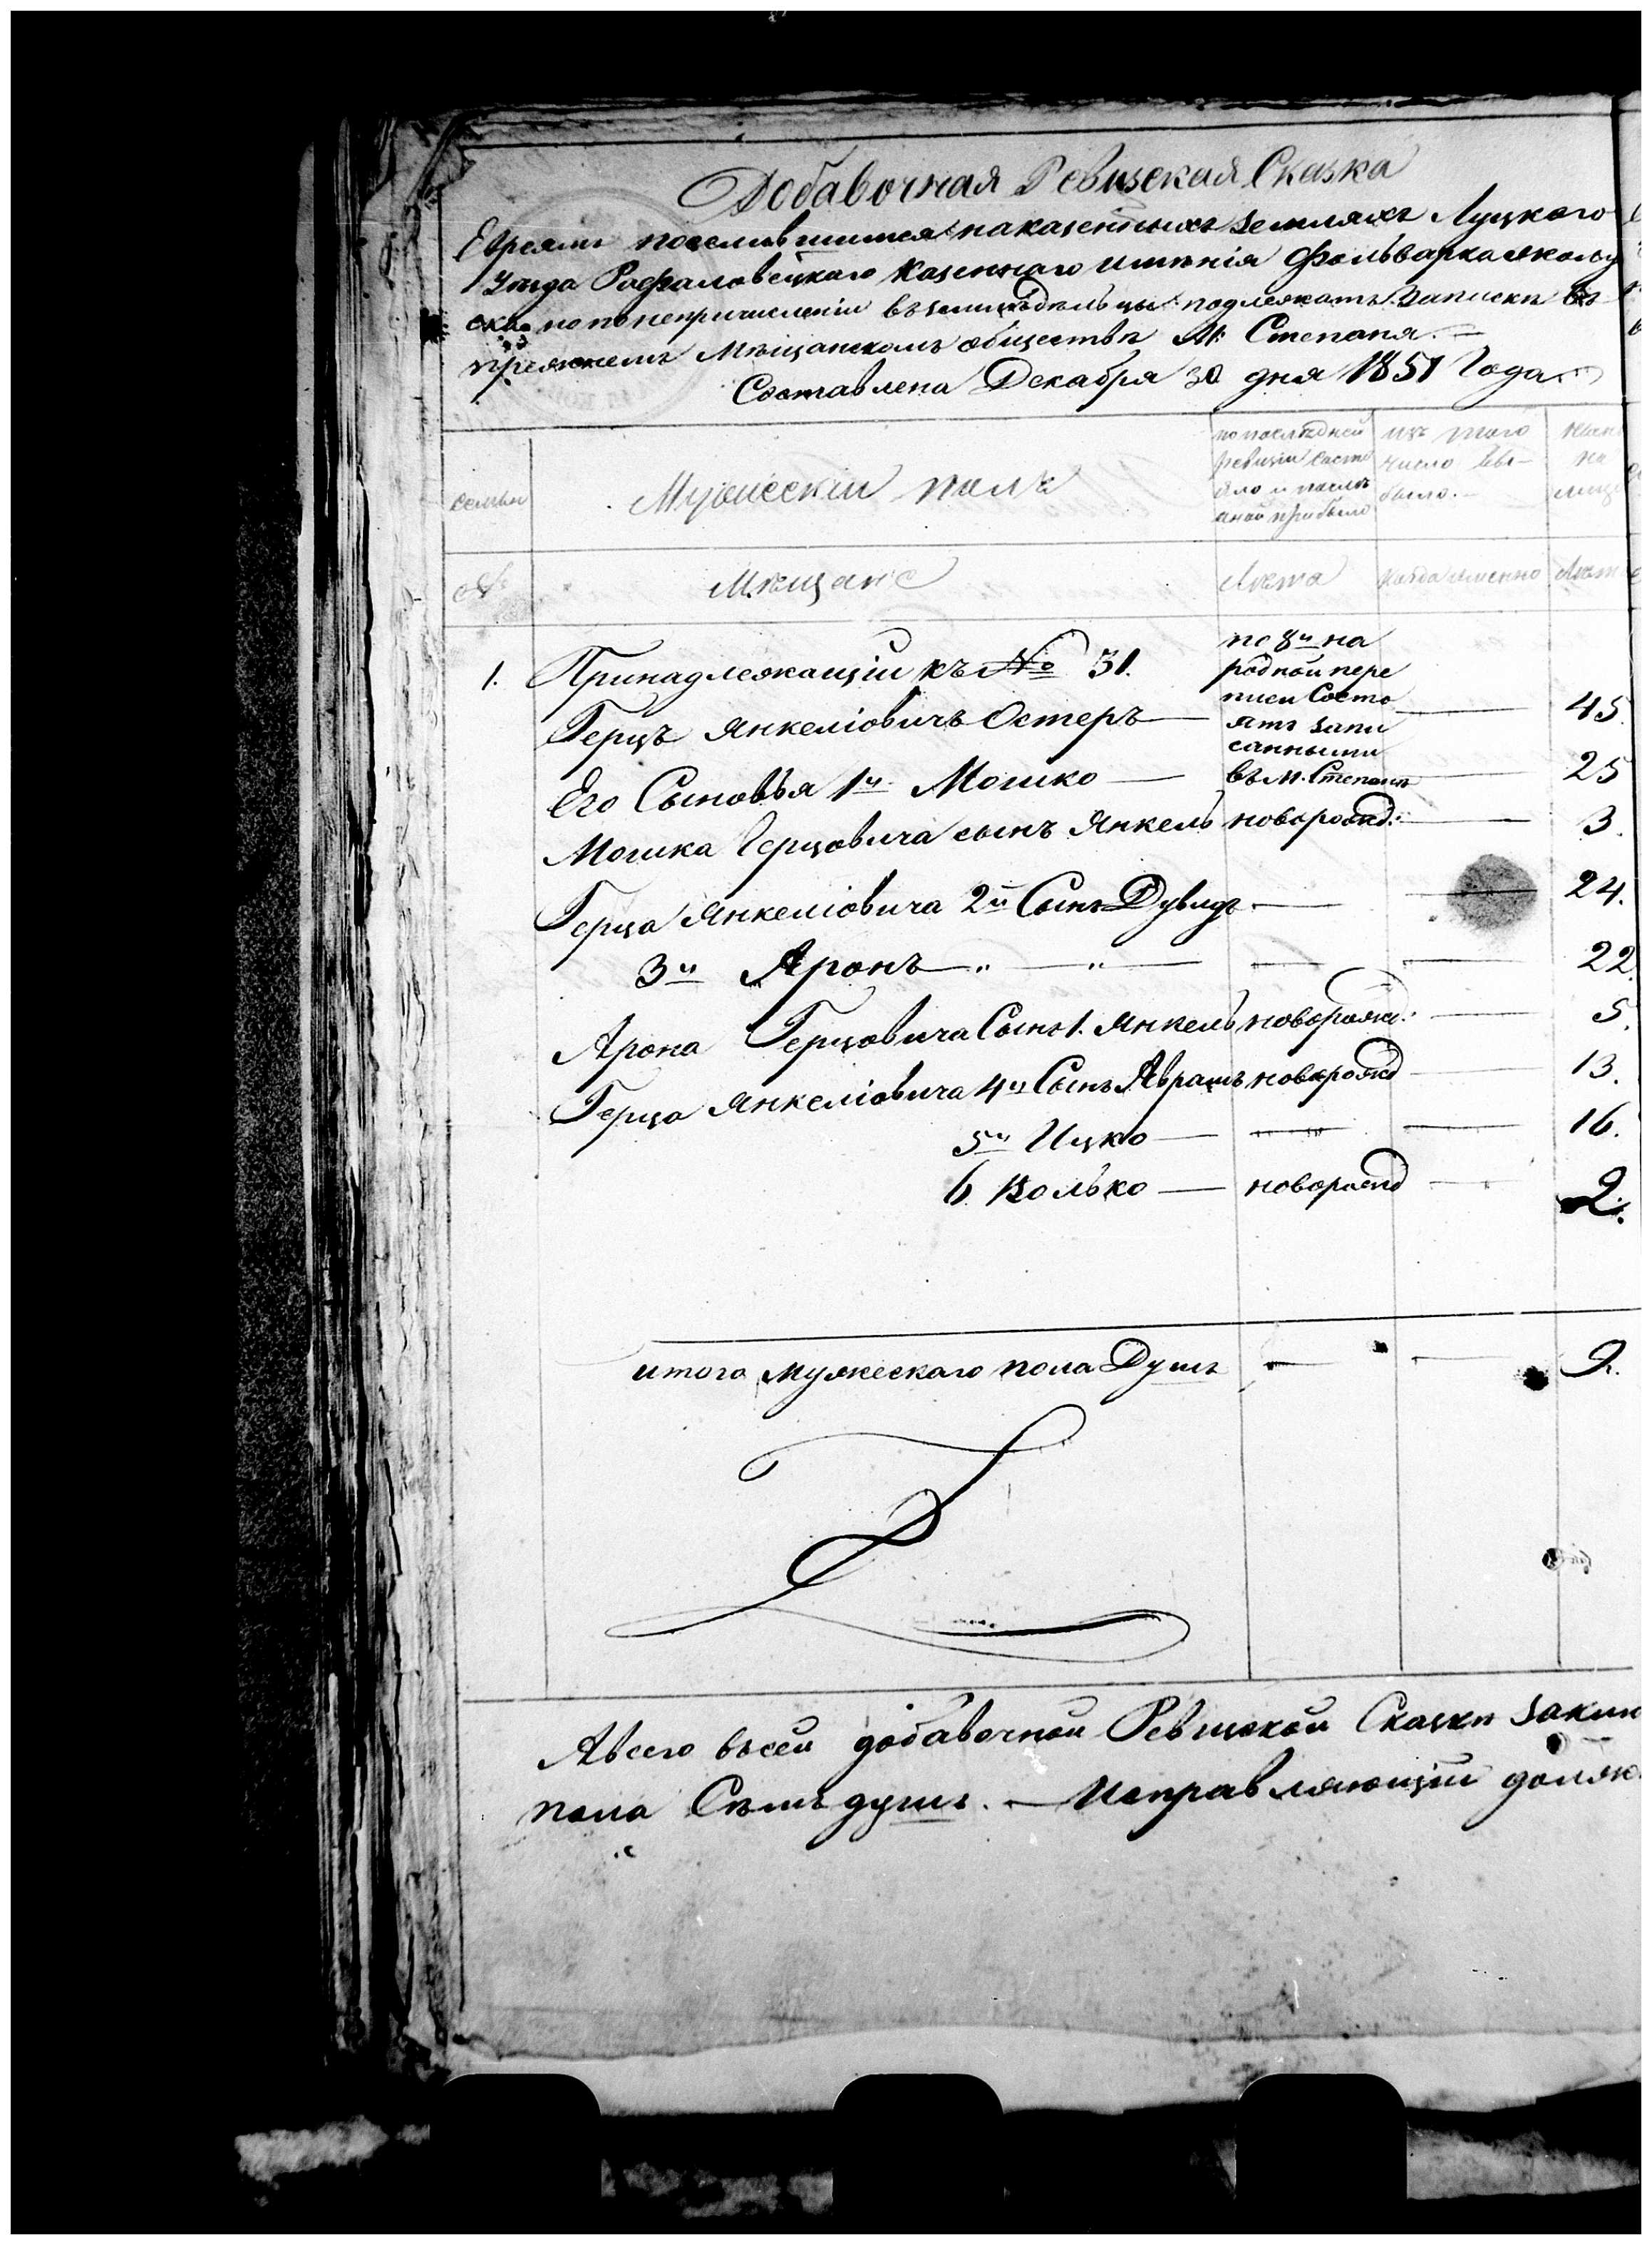 Добавочная Ревизская Сказка
Евреямъ поселившимся на казенныхъ земляхъ Луцкого
Уезда Рафаловецкаго казеннаго имѣнія Фольварка
но по непричисленіи въ земледѣльцы подлежатъ Записки въ
прежнемъ Мѣщанскомъ обществѣ М. Степаня.
Составлена Декабря 30 дня 1851 Года.
семьи
Мужескій полъ
по последней ревизіи состояло и после оной прибыло
изъ того число выбыло.
ныне на лицо
№
Мещане
Лѣта
Когда именно
Лѣта
1. Принадлежащіи къ № 31. по 8й на
родной пере
писи Состо
Герцъ Янкеліовичъ Остеръ — ятъ запи — 45.
санными
Его Сыновья 1й Мошко — въ м. Степанѣ — 25
Мошка Герцовича сынъ Янкель новорожд: — 3.
Герца Янкеліовича 2й Сынъ Дувидъ — — 24.
3й Аронъ — " — " — — — 22.
Арона Герцовича Сынъ 1. Янкель новорожд: — 5.
Герца Янкеліовича 4й Сынъ Аврамъ новорожд — 13.
5й Ицко — — — 16.
6 Волько — новорожд — 2.
итого мужескаго пола Душъ — — 9.
А всего въ сей добавочной Ревизской Сказки
пола Семь душъ. — Исправляющій долж